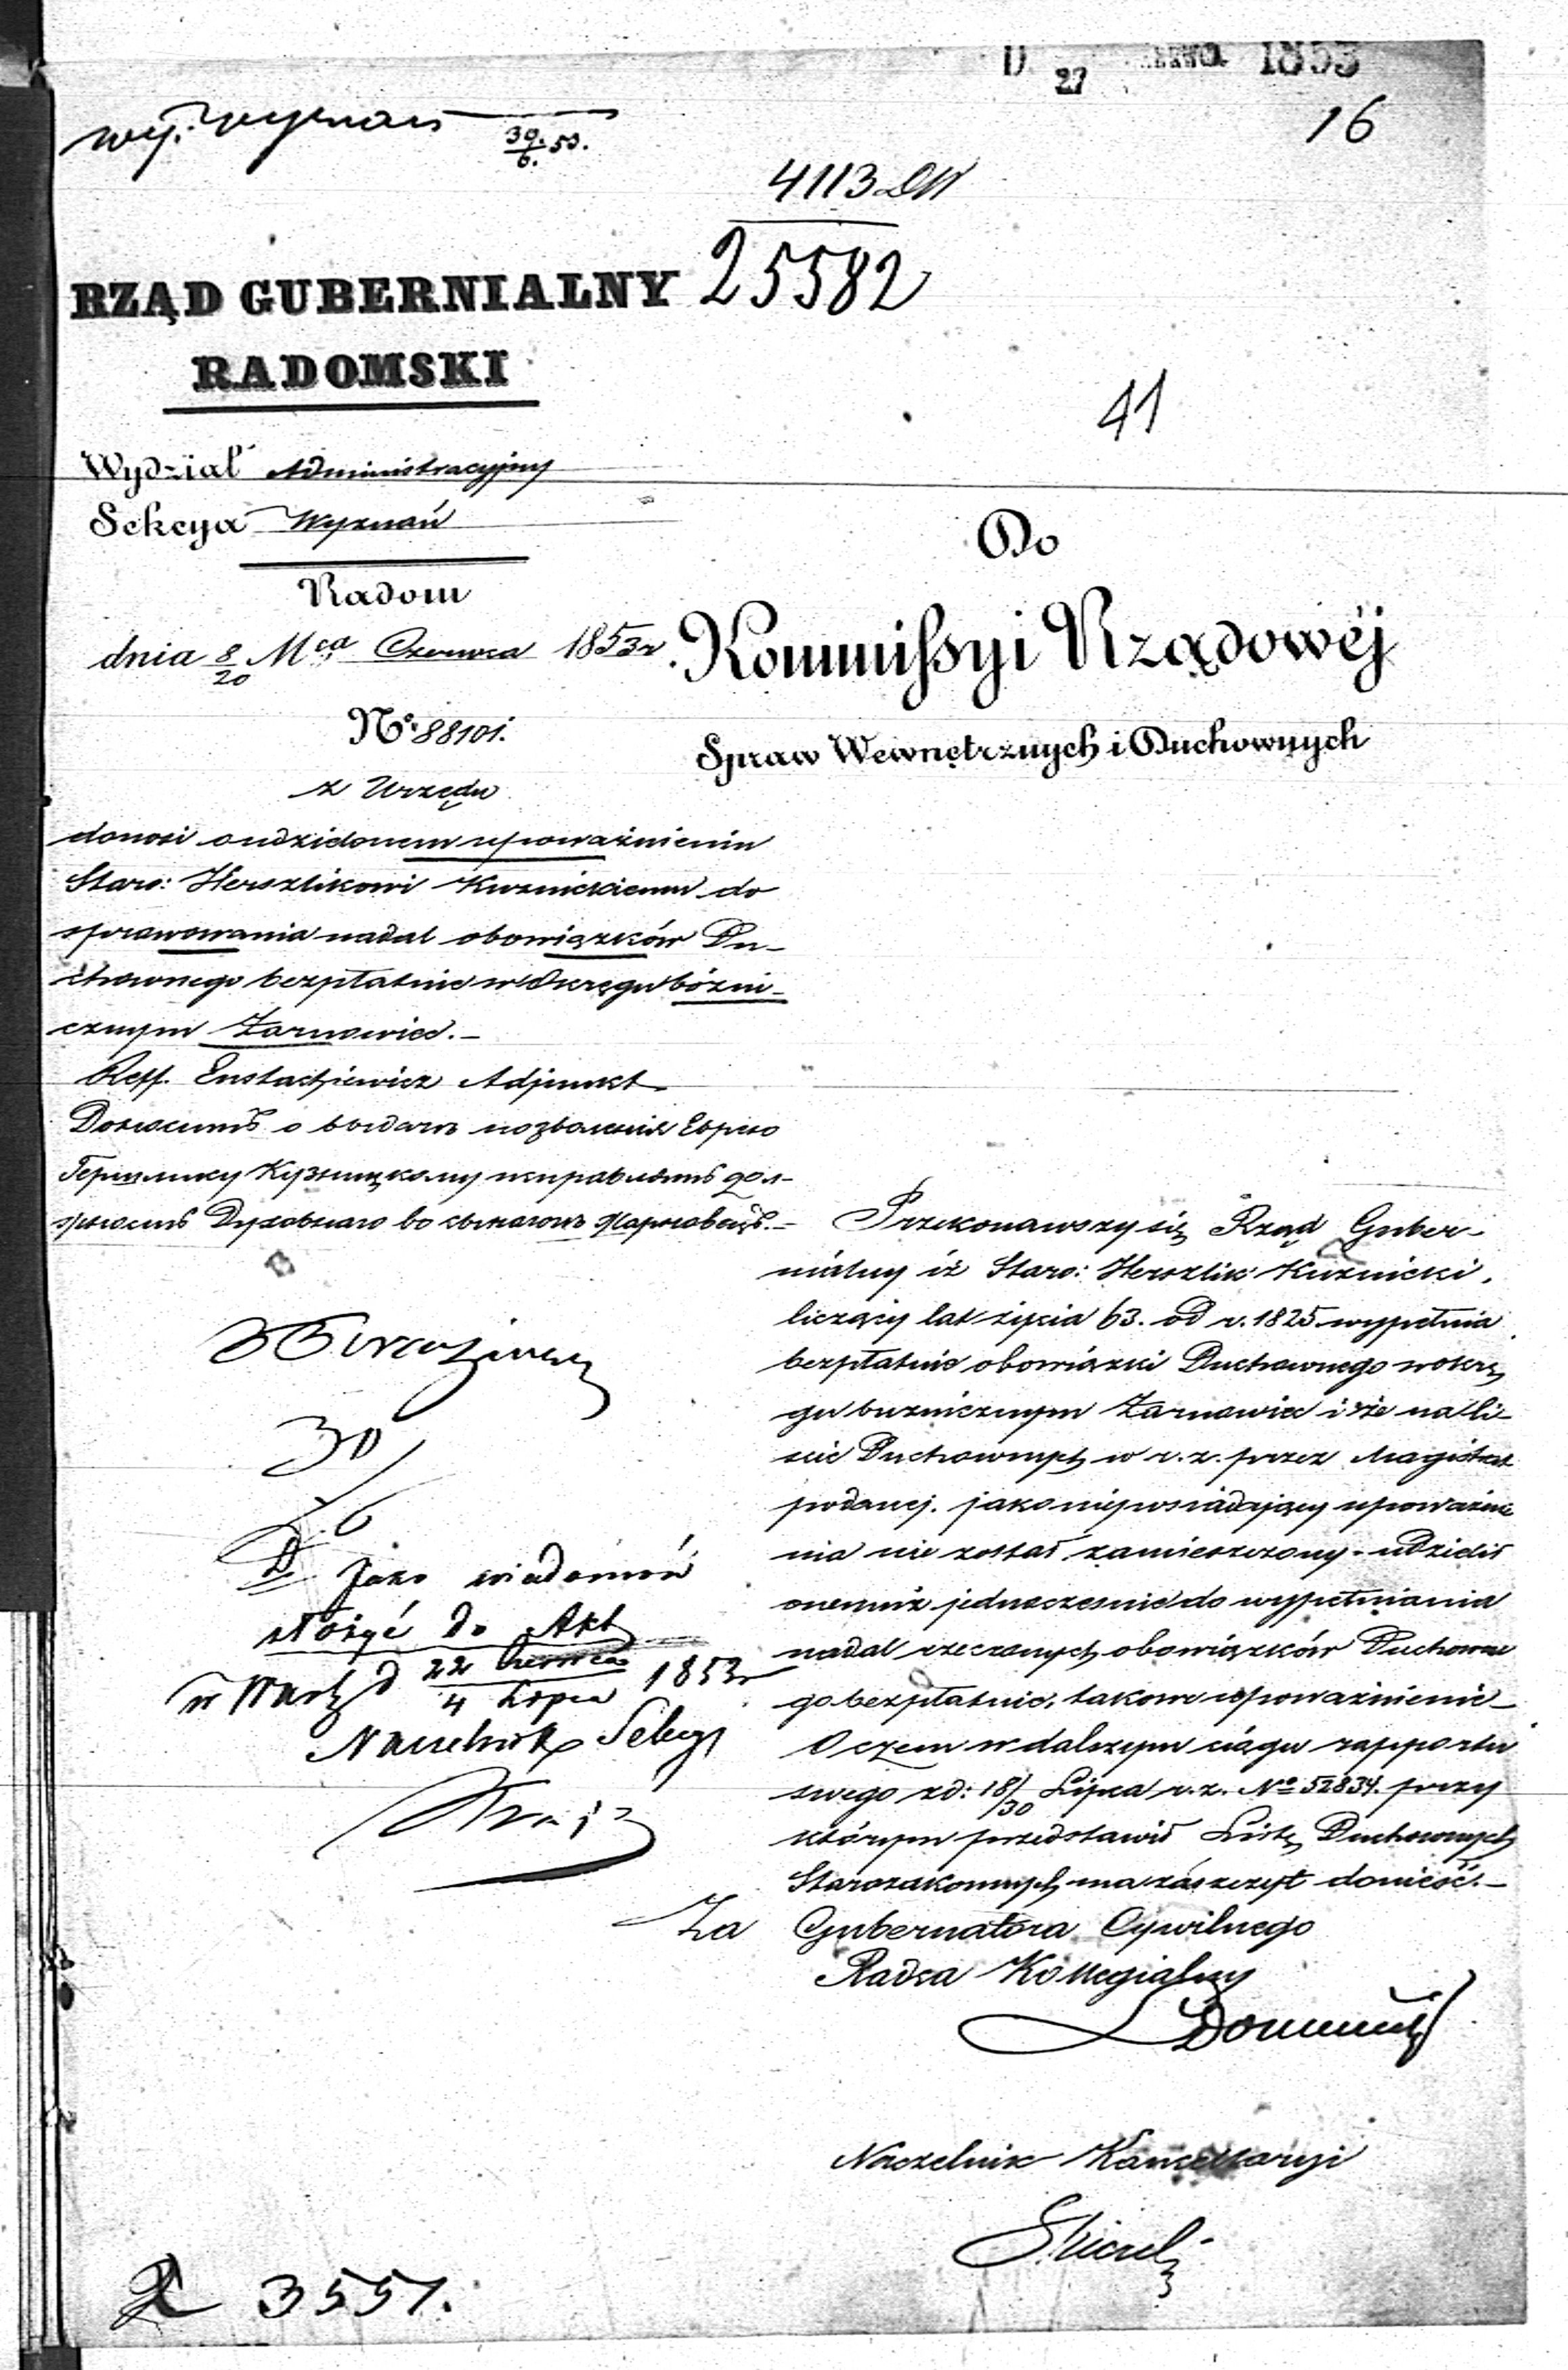 D 27 1853
16
wyz. wyznań 30/6. 53.
4113 DW
25582
RZĄD GUBERNIALNY
RADOMSKI
41
Wydział Administracyjny
Sekcya Wyznań
Radom
dnia 8/20 Mca Czerwca 1853 r.
No 88101.
z Urzędu
donosi o udzielonem upoważnieniu
Staro: Herszlikowi Kuznickiemu do
sprawowania nadal obowiązków Du-
chownego bezpłatnie w Okręgu bózni-
cznym Żarnowiec. –
Reff. Eustachiewicz Adjunkt
Доносишъ о выдачѣ позволенія Еврею
Гершлику Кузницкому исправлять дол-
Духовнаго во Жарновецъ. –
Do
Kommissyi Rządowéj
Spraw Wewnętrznych i Duchownych
Przekonawszy się Rząd Guber-
nialny iż Staro: Herszlik Kuznicki,
liczący lat życia 63. od r. 1825 wypełnia
bezpłatnie obowiązki Duchownego w okrę
gu buznicznym Żarnowiec i że na li-
scie Duchownych w r. z. przez Magistrat
podanej. jako nieposiadający upoważnie
nia nie został zamieszczony. – udzielił
onemuż jednocześnie do wypełniania
nadal rzeczonych obowiązków Duchowne
go bezpłatnie, takowe upoważnienie –
O czem w dalszym ciągu rapportu
swego z d: 18/30 Lipca r. z. No 52834. przy
którym przedstawił Listę Duchownych
Starozakonnych ma zaszczyt donieść. –
Za Gubernatora Cywilnego
Radca Kollegialny
Naczelnik Kancellaryi
30/6
D jako wiadomość
złożyć do Akt
w Warsz d 22 Czerwca/4 Lipca 1853 r
Naczelnik Sekcyi
3551.